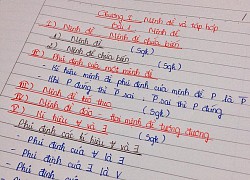 Chương I: Mệnh đề và tập hợp
Bài 1: Mệnh đề
I) Mệnh đề - Mệnh đề chứa biến
1) Mệnh đề (Sgk)
2) Mệnh đề chứa biến (Sgk)
II) Phủ định của một mệnh đề
- Kí hiệu mệnh đề phủ định của mệnh đề P là P̅
- Khi P đúng thì P̅ sai, P sai thì P̅ đúng
III) Mệnh đề kéo theo (Sgk)
IV) Mệnh đề đảo - hai mệnh đề tương đương
V) Kí hiệu ∀ và ∃ (Sgk)
Phủ định các kí hiệu ∀ và ∃
- Phủ định của ∀ là ∃
- Phủ định của ∃ là ∀